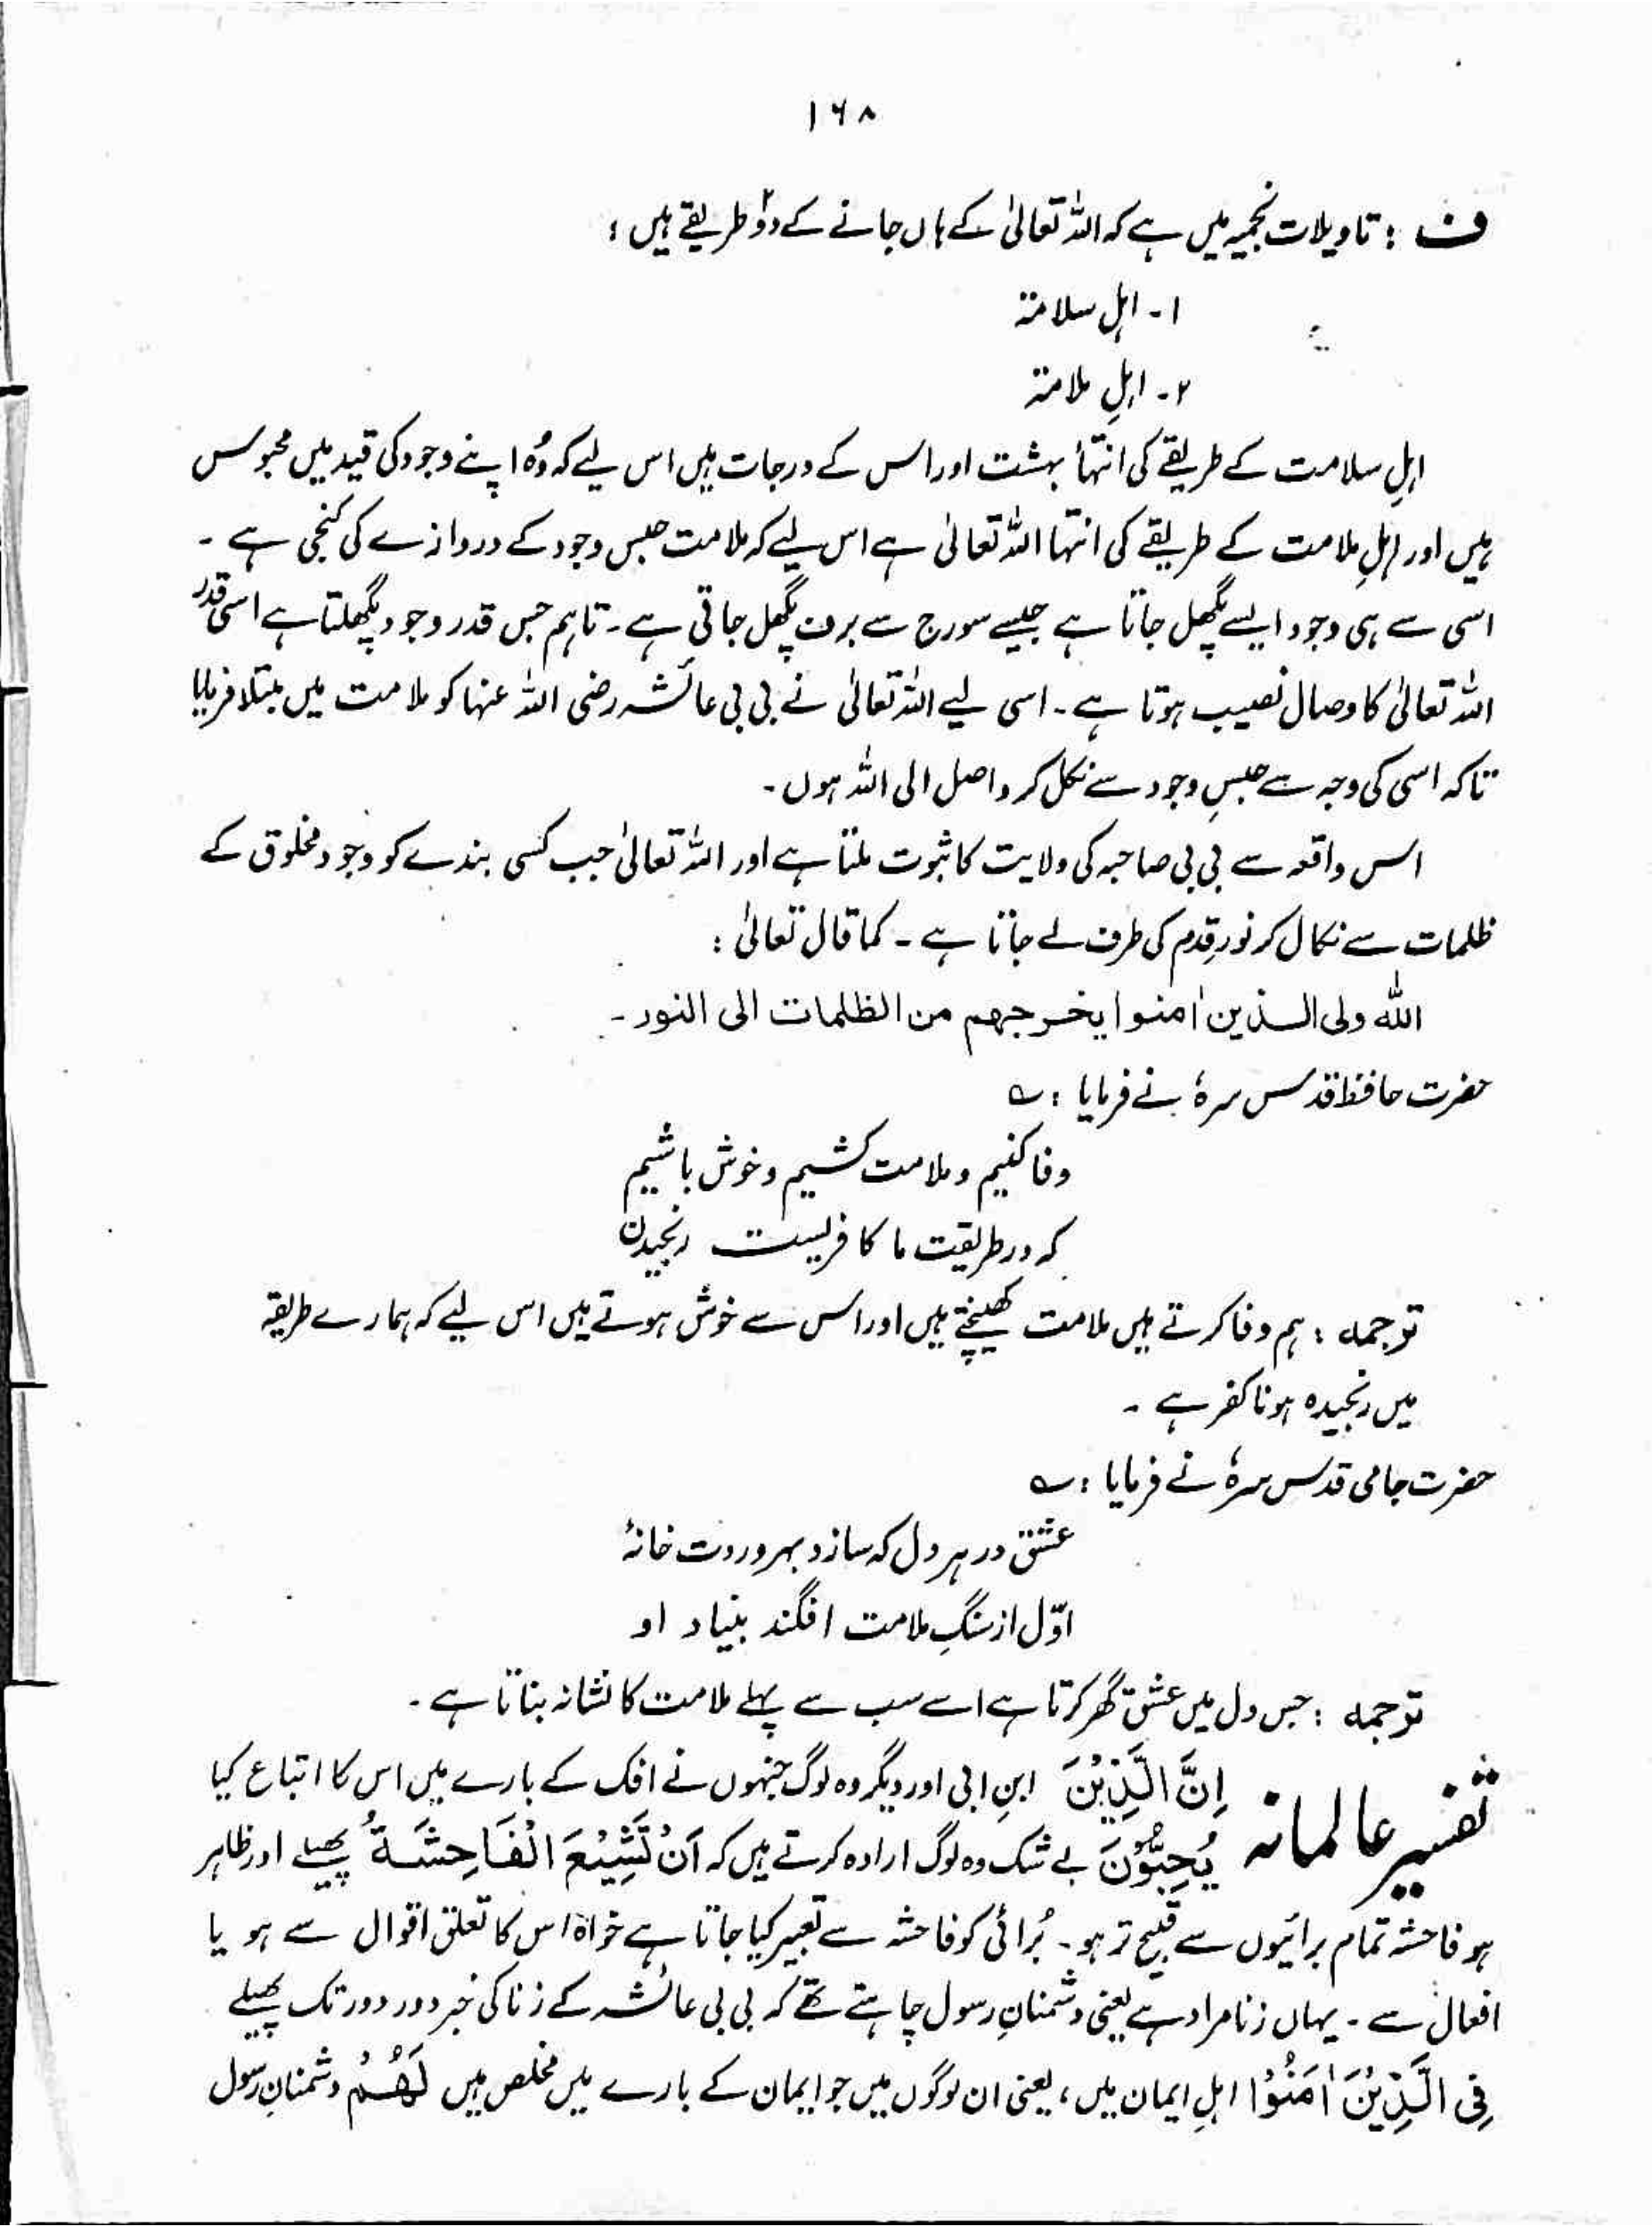 ۱۶۸
ف : تاویلات نجمیہ میں ہے کہ اللہ تعالیٰ کے ہاں جانے کے دو۲ طریقے ہیں :
۱۔ اہلِ سلامۃ
۲۔ اہلِ ملامۃ
اہلِ سلامت کے طریقے کی انتہا بہشت اور اس کے درجات ہیں اس لیے کہ وُہ اپنے وجود کی قید میں محبوس
ہیں اور اہلِ ملامت کے طریقے کی انتہا اللہ تعالیٰ ہے اس لیے کہ ملامت حبس وجود کے دروازے کی کنجی ہے ۔
اسی سے ہی وجود ایسے پگھل جاتا ہے جیسے سورج سے برف پگھل جاتی ہے ۔ تاہم جس قدر وجود پگھلتا ہے اسی قدر
اللہ تعالیٰ کا وصال نصیب ہوتا ہے ۔ اسی لیے اللہ تعالیٰ نے بی بی عائشہ رضی اللہ عنہا کو ملامت میں مبتلا فرمایا
تاکہ اسی کی وجہ سے حبسِ وجود سے نکل کر واصل الی اللہ ہوں ۔
اس واقعہ سے بی بی صاحبہ کی ولایت کا ثبوت ملتا ہے اور اللہ تعالیٰ جب کسی بندے کو وجود مخلوق کے
ظلمات سے نکال کر نورِ قِدم کی طرف لے جاتا ہے ۔ کما قال تعالیٰ :
اللہ ولی الذین اٰمنوا یخرجھم من الظلمات الی النور ۔
حضرت حافظ قدس سرہٗ نے فرمایا : ؎
وفا کنیم و ملامت کشیم و خوش باشیم
کہ در طریقت ما کافریست رنجیدن
ترجمہ : ہم وفا کرتے ہیں ملامت کھینچتے ہیں اور اس سے خوش ہوتے ہیں اس لیے کہ ہمارے طریقہ
میں رنجیدہ ہونا کفر ہے ۔
حضرت جامی قدس سرہٗ نے فرمایا : ؎
عشق در ہر دل کہ سازد بہر وردت خانۂ
اوّل از سنگِ ملامت افگند بنیاد او
ترجمہ : جس دل میں عشق گھر کرتا ہے اسے سب سے پہلے ملامت کا نشانہ بناتا ہے ۔
تفسیر عالمانہ اِنَّ الَّذِیْنَ ابنِ ابی اور دیگر وہ لوگ جنہوں نے افک کے بارے میں اس کا اتباع کیا
یُحِبُّوْنَ بے شک وہ لوگ ارادہ کرتے ہیں کہ اَنْ تَشِیْعَ الْفَاحِشَۃُ پھیلے اور ظاہر
ہو فاحشہ تمام برائیوں سے قبیح تر ہو ۔ بُرائی کو فاحشہ سے تعبیر کیا جاتا ہے خواہ اس کا تعلق اقوال سے ہو یا
افعال سے ۔ یہاں زنا مراد ہے یعنی دشمنانِ رسول چاہتے تھے کہ بی بی عائشہ کے زنا کی خبر دور دور تک پھیلے
فِی الَّذِیْنَ اٰمَنُوْا اہلِ ایمان میں ، یعنی ان لوگوں میں جو ایمان کے بارے میں مخلص ہیں لَھُمْ دشمنانِ رسول